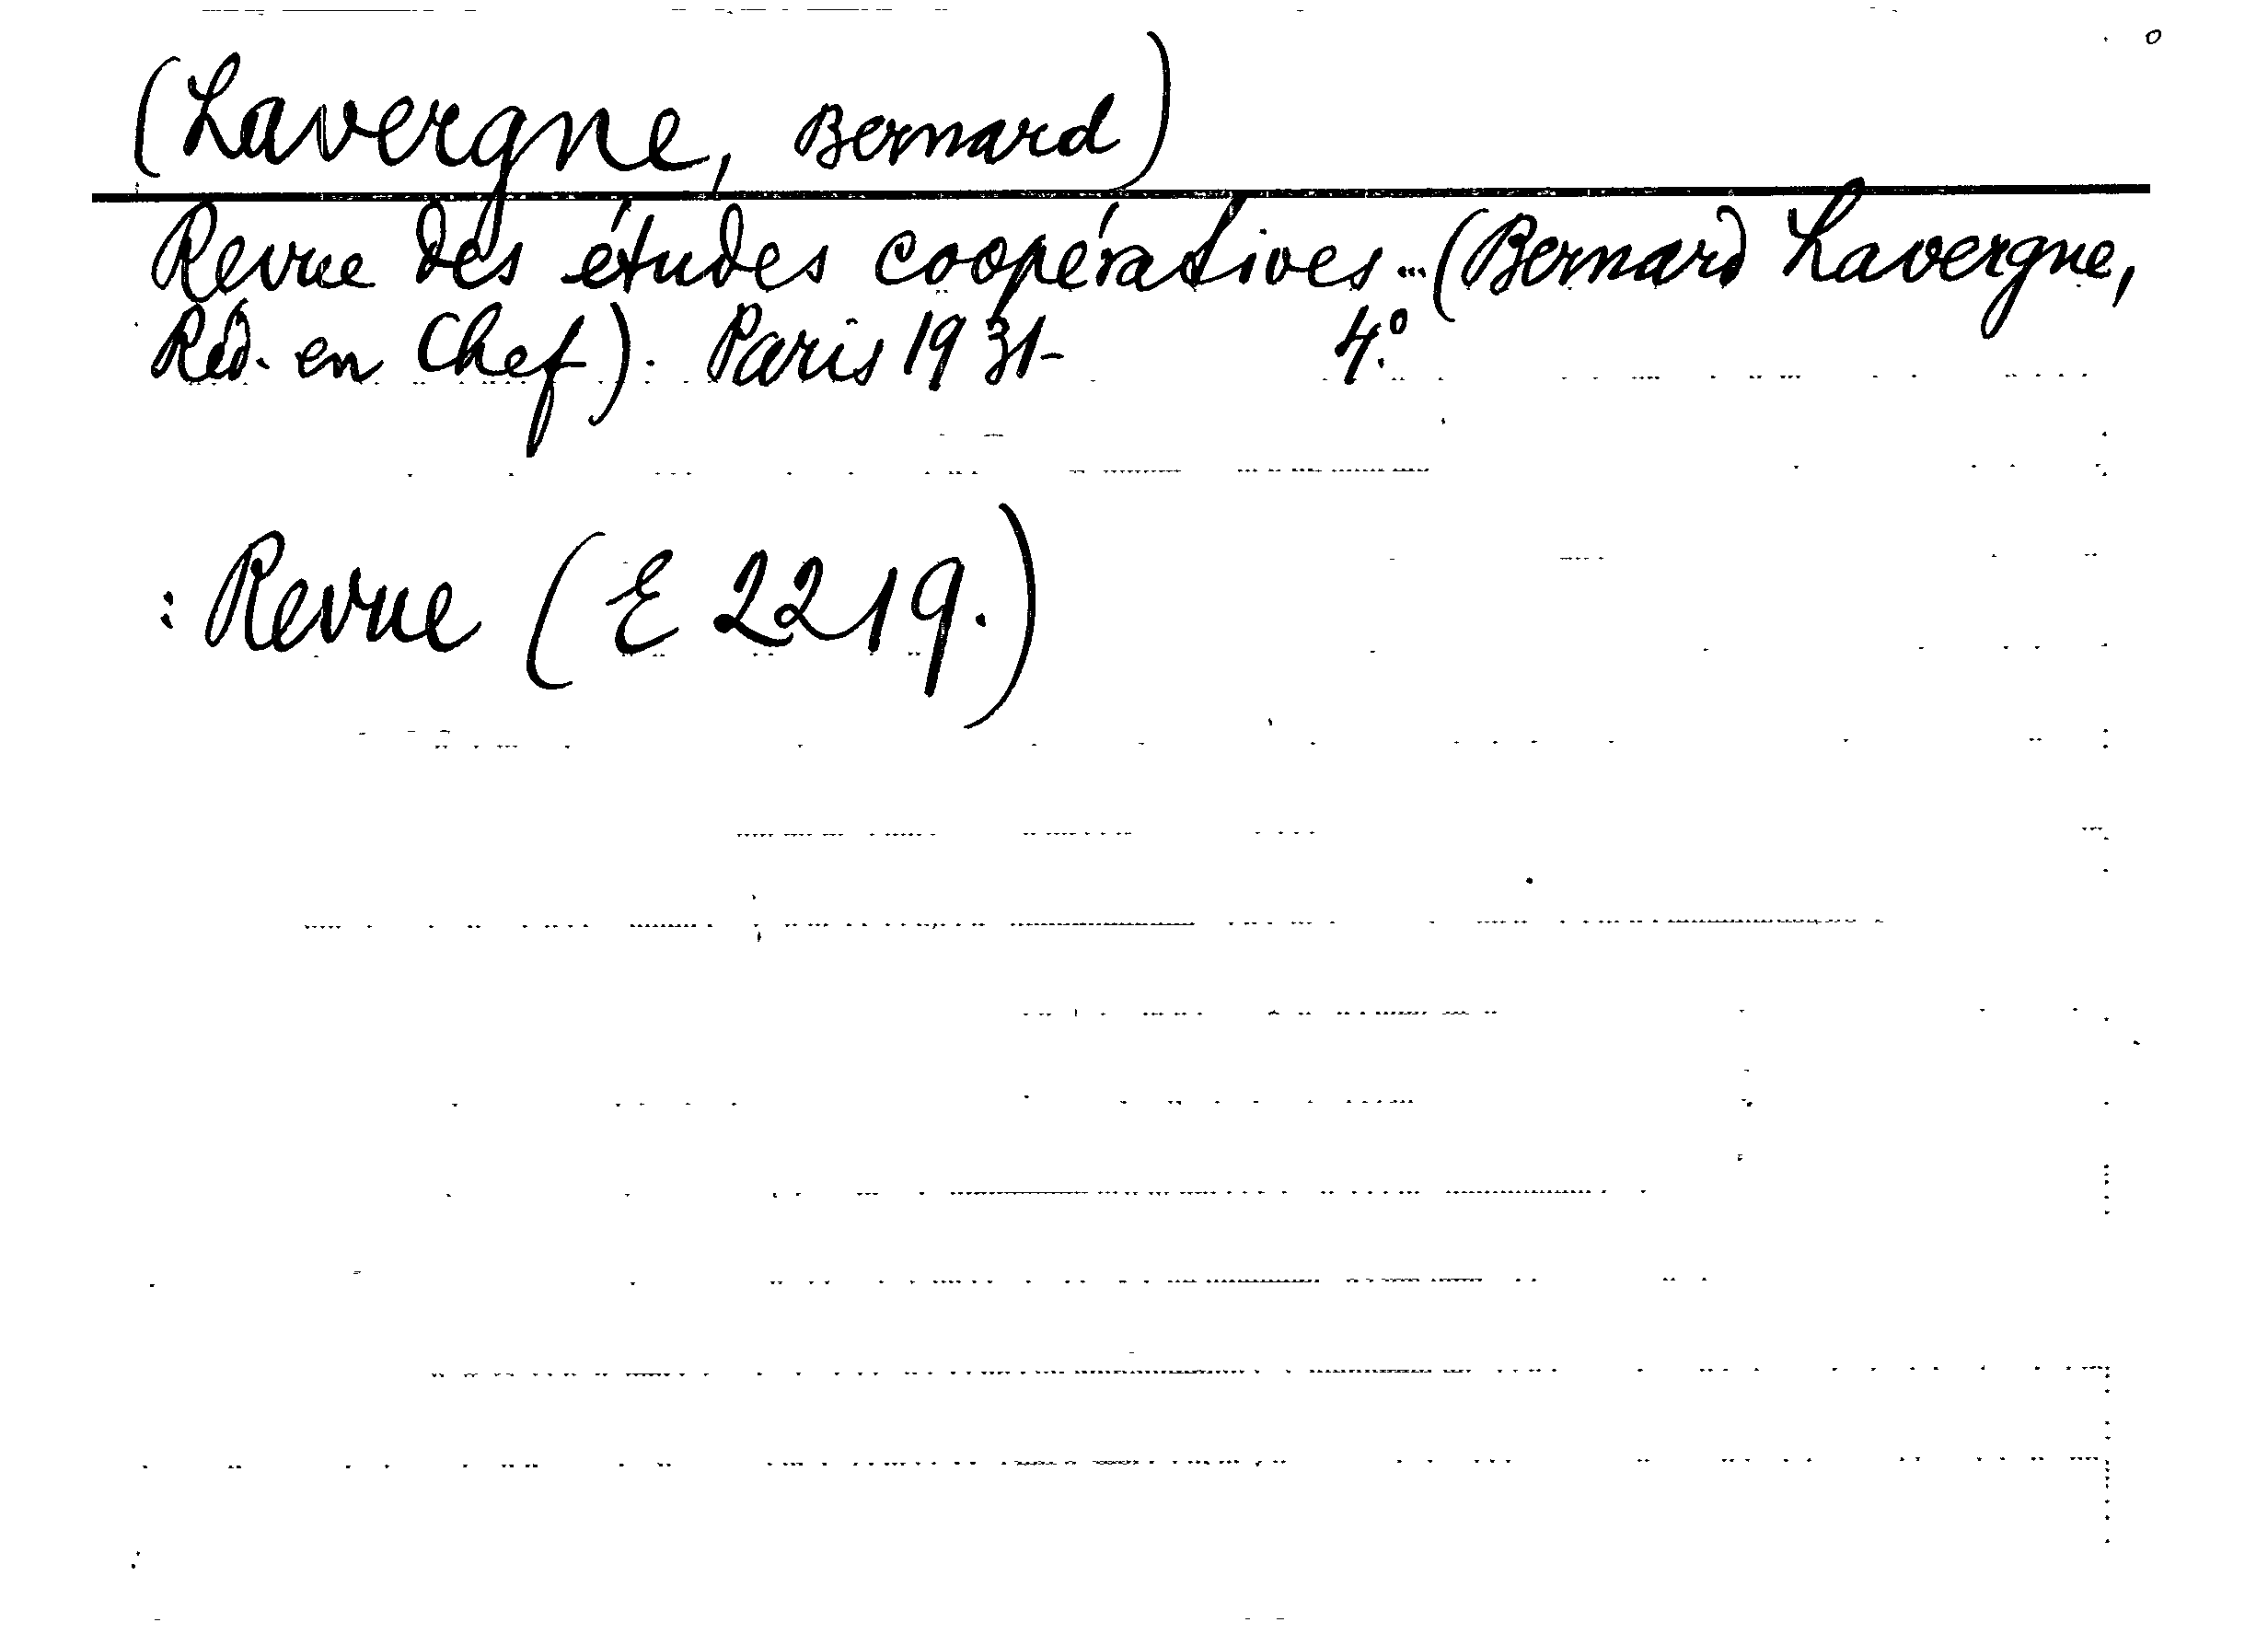 (Lavergne, Bernard)
Revue des études coopératives... (Bernard Lavergne,
Réd. en Chef). Paris 1931- 4.°
: Revue (E 2219.)